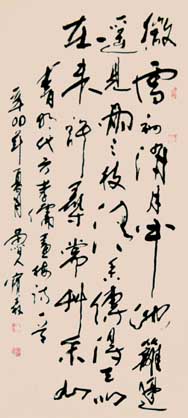 微雪初消月半池籬邊
遥見兩三枝清香傳得天心
在未許尋常草木知
書明代方孝孺畫梅詩一首
年夏月